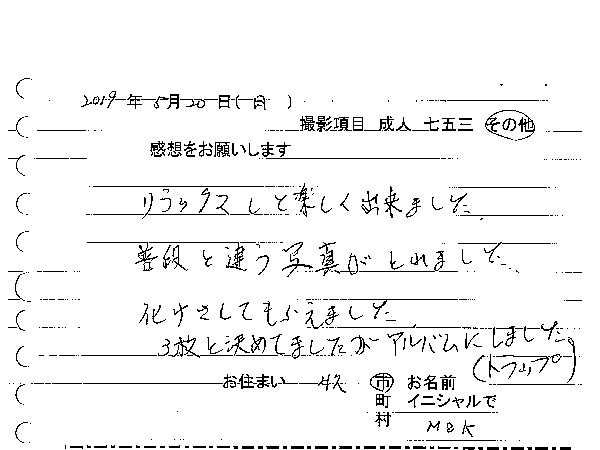 2019年5月20日(日)
撮影項目 成人 七五三 その他
感想をお願いします
リラックスしと楽しく出来ました。
普段と違う写真がとれました。
化けさしてもらえました
3放と決めてましたがアルバムにしました。
(トフップ)
お住まい 市町村
お名前 イニシャルで
M&K